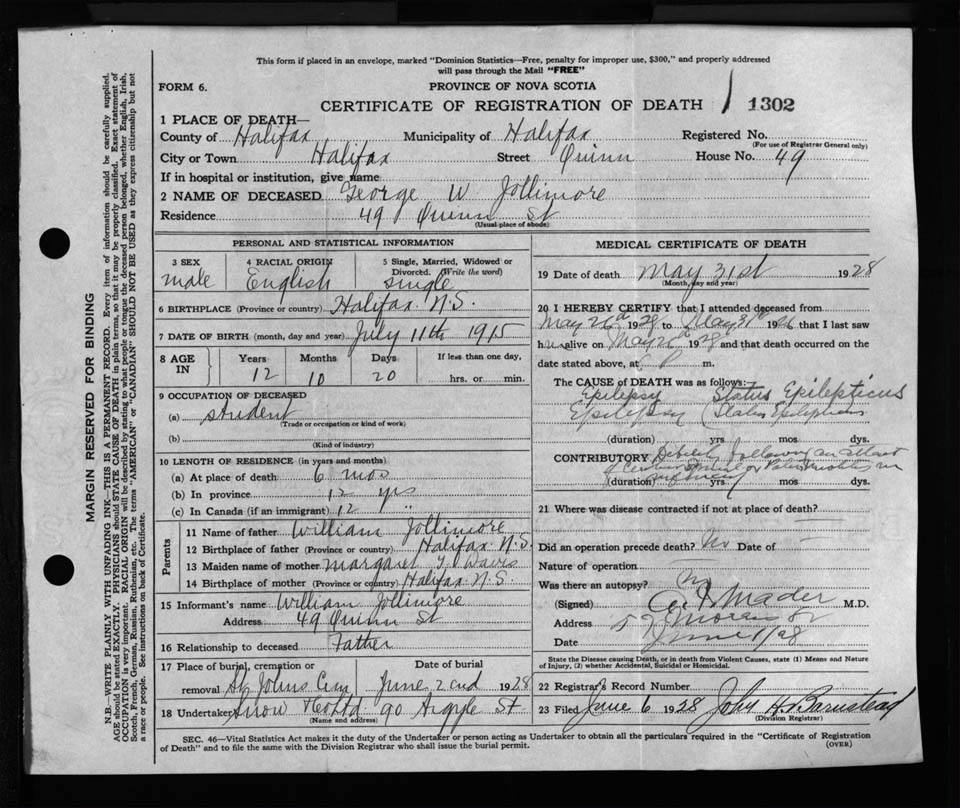 This form if placed in an envelope, marked "Dominion Statistics—Free, penalty for improper use, $300," and properly addressed
will pass through the Mail "FREE"
FORM 6.
PROVINCE OF NOVA SCOTIA
CERTIFICATE OF REGISTRATION OF DEATH 1302
1 PLACE OF DEATH—
County of Halifax Municipality of Halifax Registered No.
(For use of Registrar General only)
City or Town Halifax Street Quinn House No. 49
If in hospital or institution, give name
2 NAME OF DECEASED George W Jollimore
Residence 49 Quinn St
(Usual place of abode)
PERSONAL AND STATISTICAL INFORMATION
3 SEX 4 RACIAL ORIGIN 5 Single, Married, Widowed or
Divorced. (Write the word)
male English single
6 BIRTHPLACE (Province or country) Halifax N.S.
7 DATE OF BIRTH (month, day and year) July 11th 1915
8 AGE IN Years Months Days If less than one day,
12 10 20 hrs. or min.
9 OCCUPATION OF DECEASED
(a) student
(Trade or occupation or kind of work)
(b)
(Kind of industry)
10 LENGTH OF RESIDENCE (in years and months)
(a) At place of death 6 mos
(b) In province 12 yrs
(c) In Canada (if an immigrant) 12 "
Parents
11 Name of father William Jollimore
12 Birthplace of father (Province or country) Halifax N.S.
13 Maiden name of mother Margaret
14 Birthplace of mother (Province or country) Halifax N.S.
15 Informant's name William Jollimore
Address 49 Quinn St
16 Relationship to deceased Father
17 Place of burial, cremation or Date of burial
removal St Johns Cem June 2nd 1928
18 Undertaker Snow & Co Ltd 90 Argyle St
(Name and address)
MEDICAL CERTIFICATE OF DEATH
19 Date of death May 31st 1928
(Month, day and year)
20 I HEREBY CERTIFY that I attended deceased from
May 26 1928 to May 31 19 that I last saw
h alive on May 1928 and that death occurred on the
date stated above, at P m.
The CAUSE of DEATH was as follows:
Epilepsy Status Epilepticus
Epilepsy (Status Epilepticus
(duration) yrs mos dys.
CONTRIBUTORY Debility following an attack
of
(duration) yrs mos dys.
21 Where was disease contracted if not at place of death?
Did an operation precede death? No Date of
Nature of operation
Was there an autopsy? No
(Signed) Mader M.D.
Address 57 Morris St
Date June 1/28
State the Disease causing Death, or in death from Violent Causes, state (1) Means and Nature
of Injury, (2) whether Accidental, Suicidal or Homicidal.
22 Registrar's Record Number
23 Filed June 6 1928 John H. Barnstead
(Division Registrar)
SEC. 46—Vital Statistics Act makes it the duty of the Undertaker or person acting as Undertaker to obtain all the particulars required in the "Certificate of Registration
of Death" and to file the same with the Division Registrar who shall issue the burial permit.
(OVER)
MARGIN RESERVED FOR BINDING
N.B.—WRITE PLAINLY WITH UNFADING INK—THIS IS A PERMANENT RECORD. Every item of information should be carefully supplied.
AGE should be stated EXACTLY. PHYSICIANS should STATE CAUSE OF DEATH in plain terms, so that it may be properly classified. Exact statement of
OCCUPATION is very important. RACIAL ORIGIN will be described by stating to what people or tongue the deceased person belonged, whether English, Irish,
Scotch, French, German, Russian, Ruthenian, etc. The terms "AMERICAN" or "CANADIAN" SHOULD NOT BE USED as they express citizenship but not
a race or people. See instructions on back of Certificate.